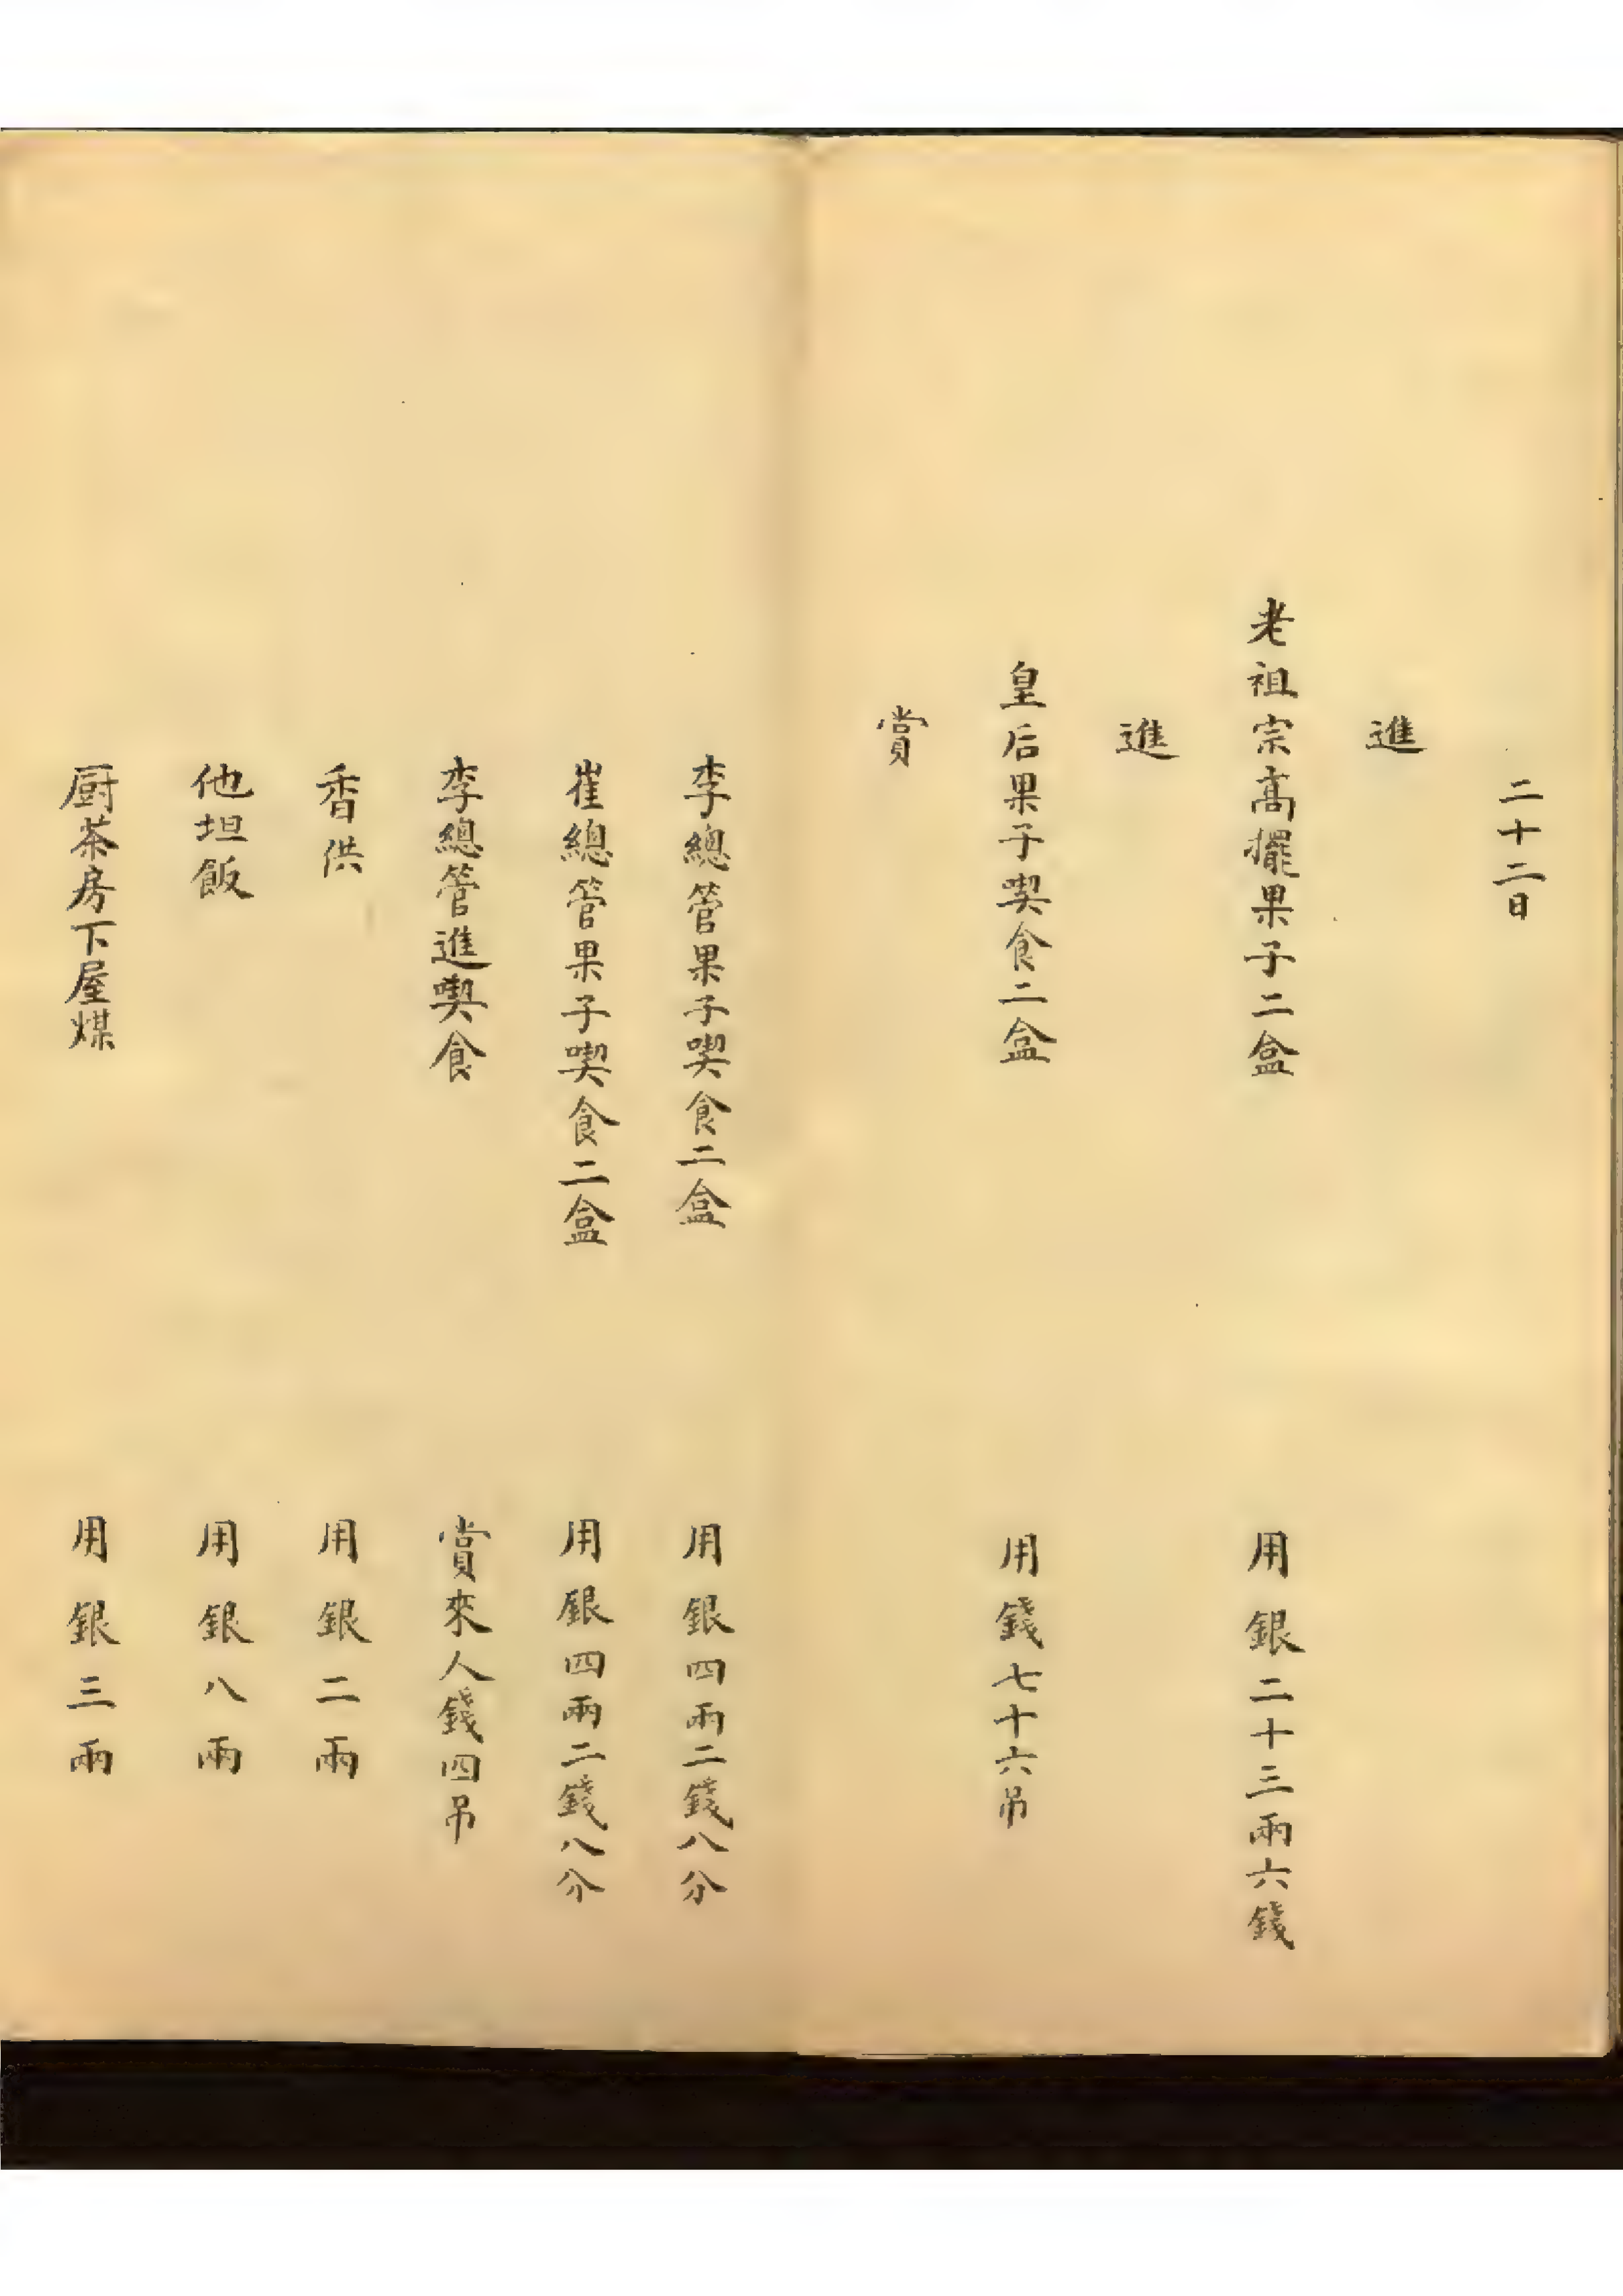 二十二日
進
老祖宗高擺果子二盒 用銀二十三兩六錢
進
皇后果子喫食二盒 用錢七十六吊
賞
李總管果子喫食二盒 用銀四兩二錢八分
崔總管果子喫食二盒 用銀四兩二錢八分
李總管進喫食 賞來人錢四吊
香供 用銀二兩
他坦飯 用銀八兩
厨茶房下屋煤 用銀三兩